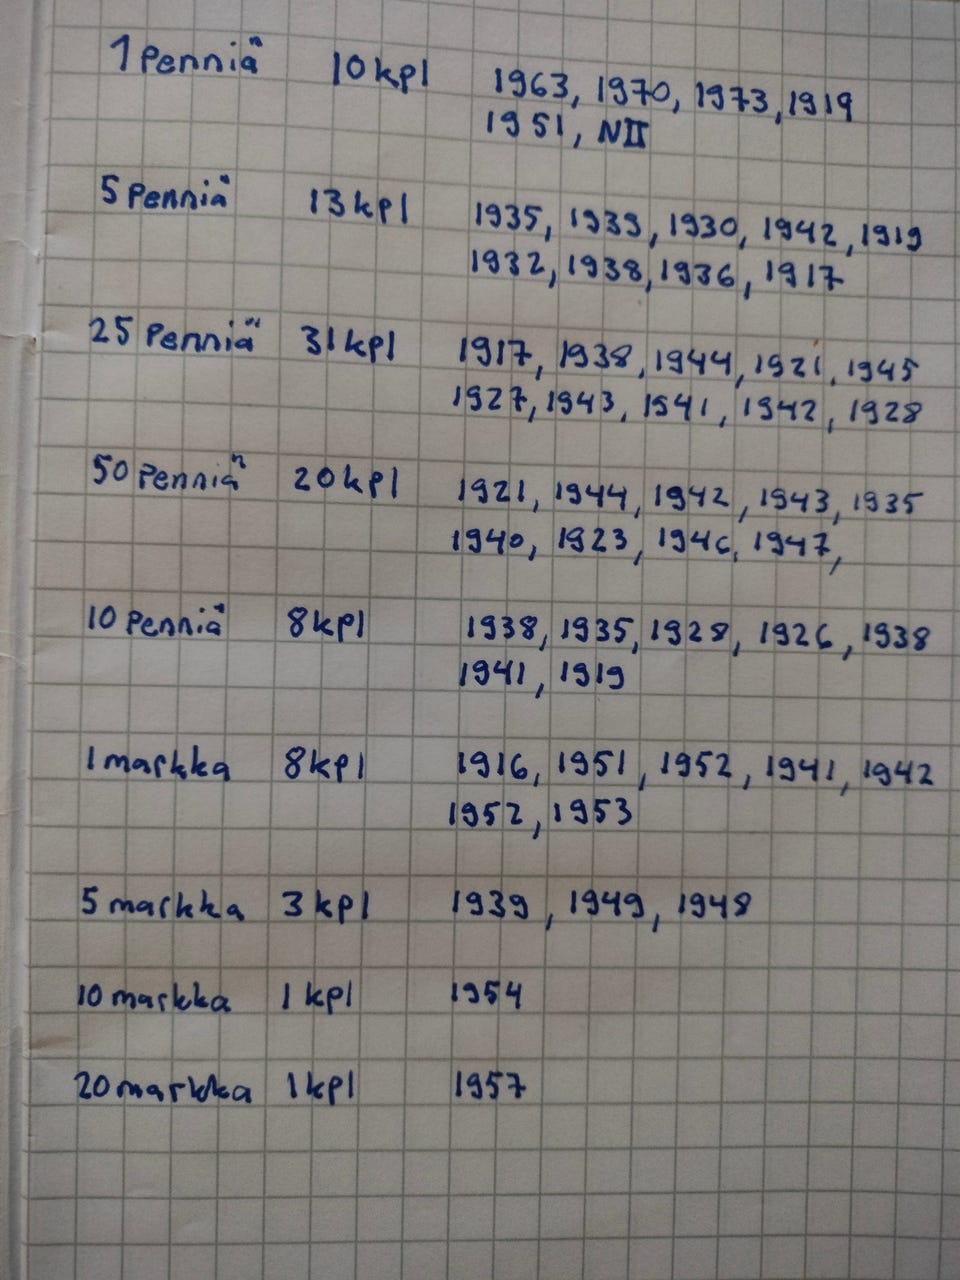 1 Penniä 10 kpl 1963, 1970, 1973, 1919
1951, NII
5 Penniä 13 kpl 1935, 1939, 1930, 1942, 1919
1932, 1938, 1936, 1917
25 Penniä 31 kpl 1917, 1938, 1944, 1921, 1945
1927, 1943, 1941, 1942, 1928
50 Penniä 20 kpl 1921, 1944, 1942, 1943, 1935
1940, 1923, 1946, 1947,
10 Penniä 8 kpl 1938, 1935, 1928, 1926, 1938
1941, 1919
1 markka 8 kpl 1916, 1951, 1952, 1941, 1942
1952, 1953
5 markka 3 kpl 1939, 1949, 1948
10 markka 1 kpl 1954
20 markka 1 kpl 1957